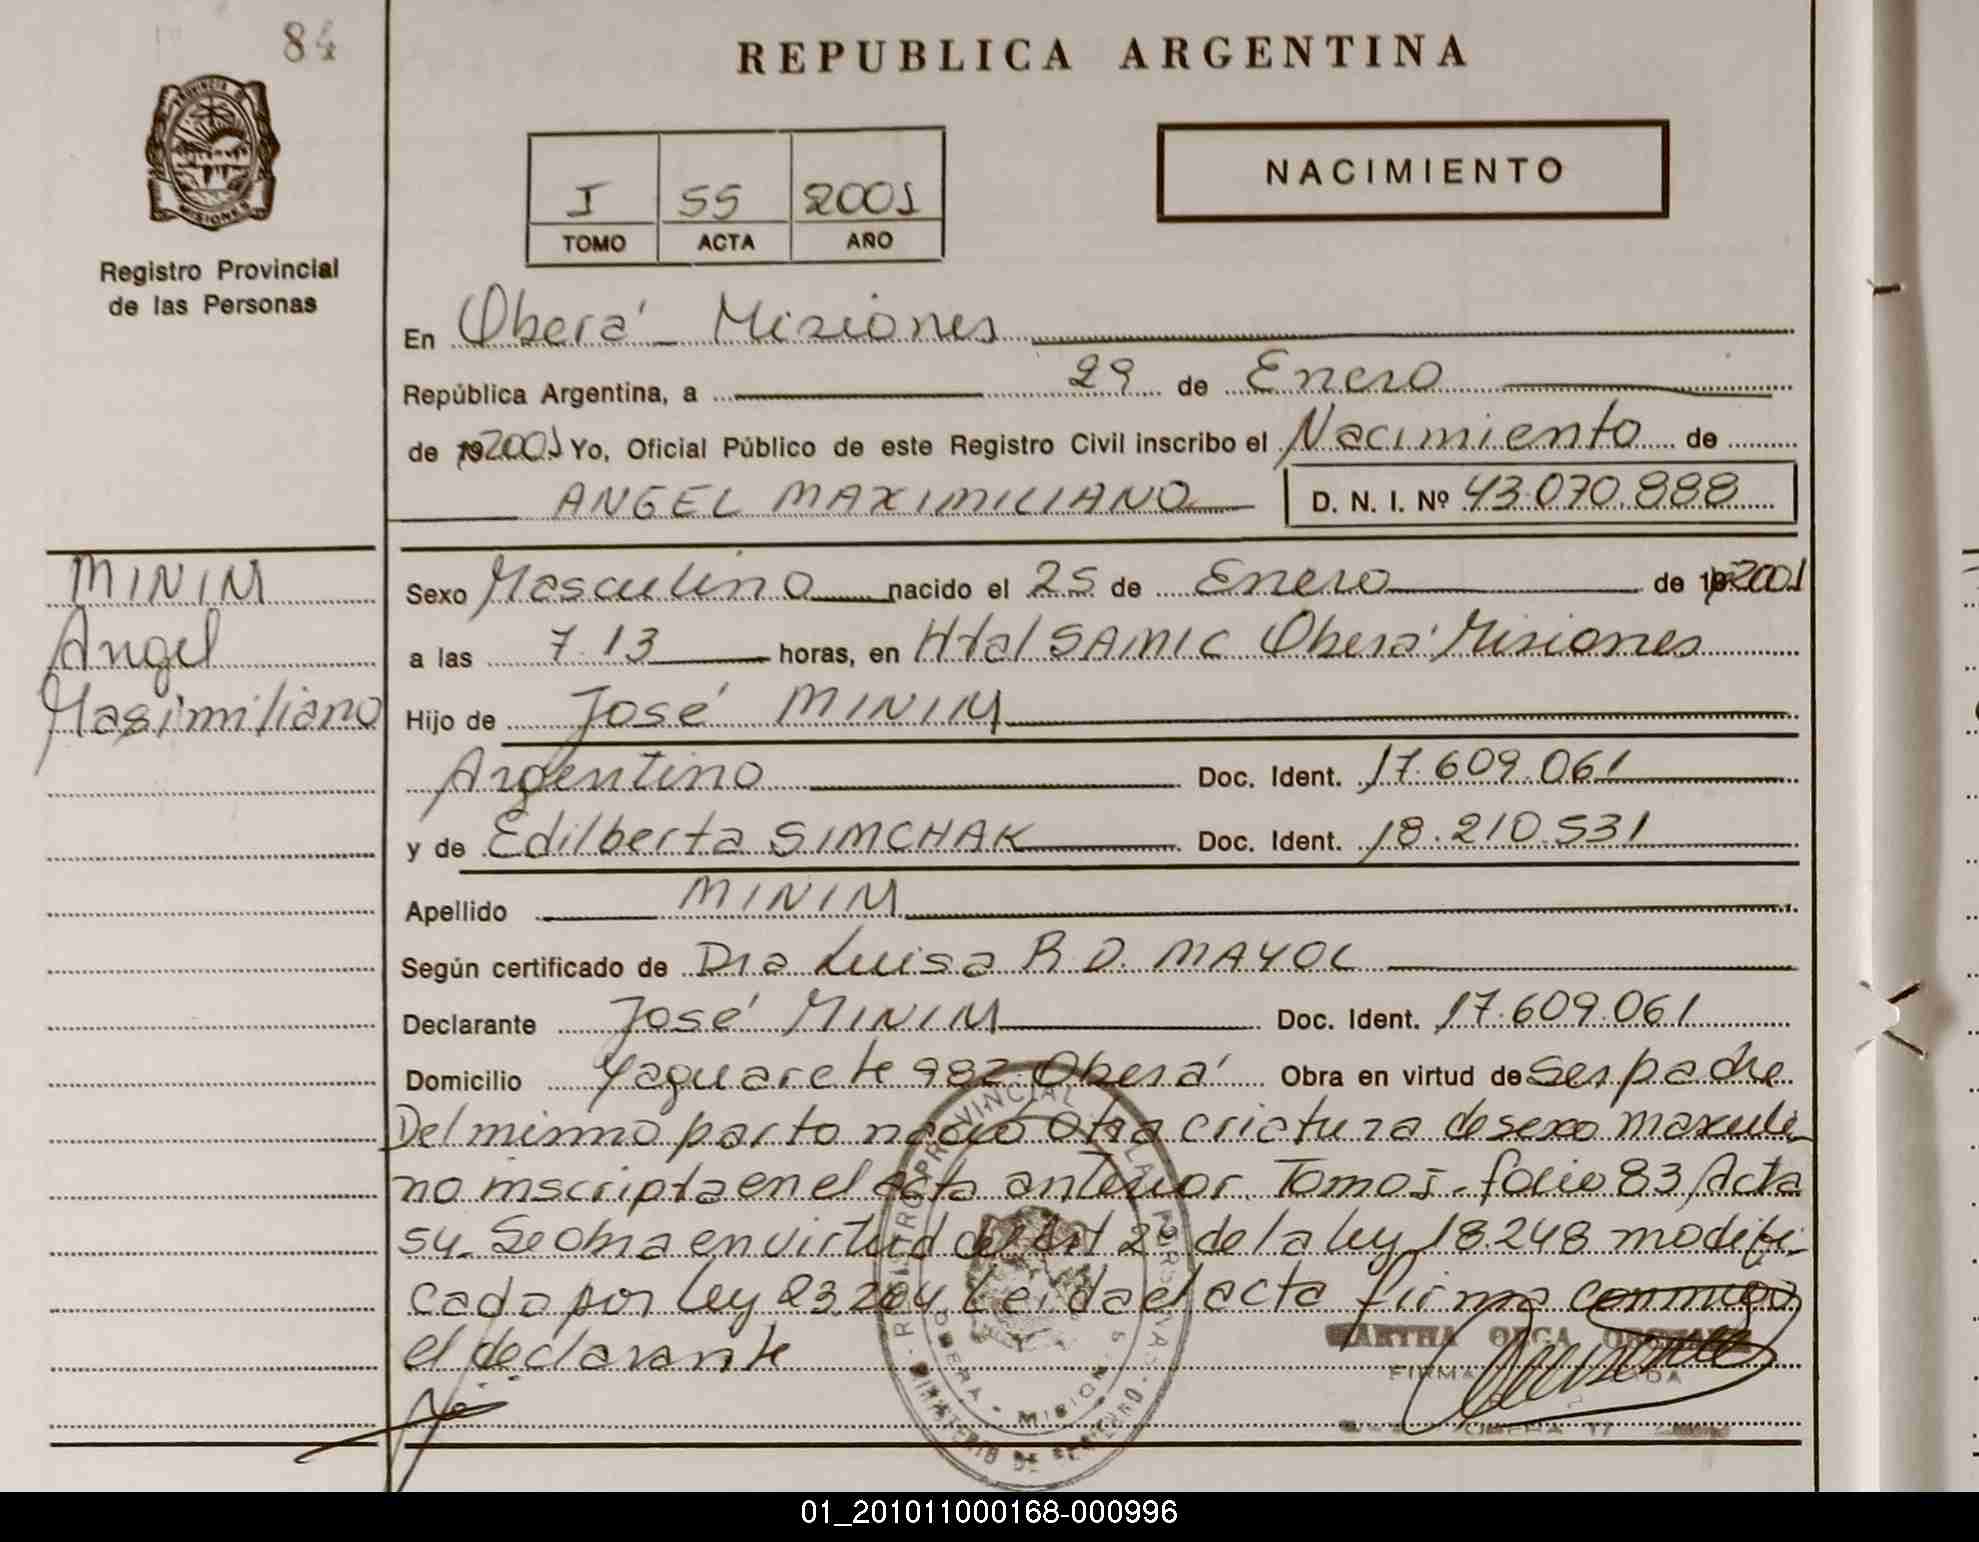 84
REPUBLICA ARGENTINA
PROVINCIA D
MISIONES
Registro Provincial
de las Personas
I 55 2001
TOMO ACTA AÑO
NACIMIENTO
En Oberá - Misiones
República Argentina, a 29 de Enero
de 192001 Yo, Oficial Público de este Registro Civil inscribo el Nacimiento de
ANGEL MAXIMILIANO D. N. I. Nº 43.070.888
MINIM
Angel
Maximiliano
Sexo Masculino nacido el 25 de Enero de 192001
a las 7.13 horas, en Htal SAMIC Oberá Misiones
Hijo de José MINIM
Argentino Doc. Ident. 17.609.061
y de Edilberta SIMCHAK Doc. Ident. 18.210.531
Apellido MINIM
Según certificado de Dra Luisa R.D. MAYOL
Declarante José MINIM Doc. Ident. 17.609.061
Domicilio Yaguarete 982 Oberá Obra en virtud de Ser padre
Del mismo parto nació otra criatura de sexo masculi-
no inscripta en el acta anterior. Tomo I - folio 83 Acta
54. Se obra en virtud del Art 2º de la ley 18.248 modifi-
cada por ley 23.264. Leida el acta firma conmigo
el declarante
REGISTRO PROVINCIAL DE LAS PERSONAS
OBERA - MISIONES
MINISTERIO DE GOBIERNO
MARTHA OLGA
FIRMA
01_201011000168-000996